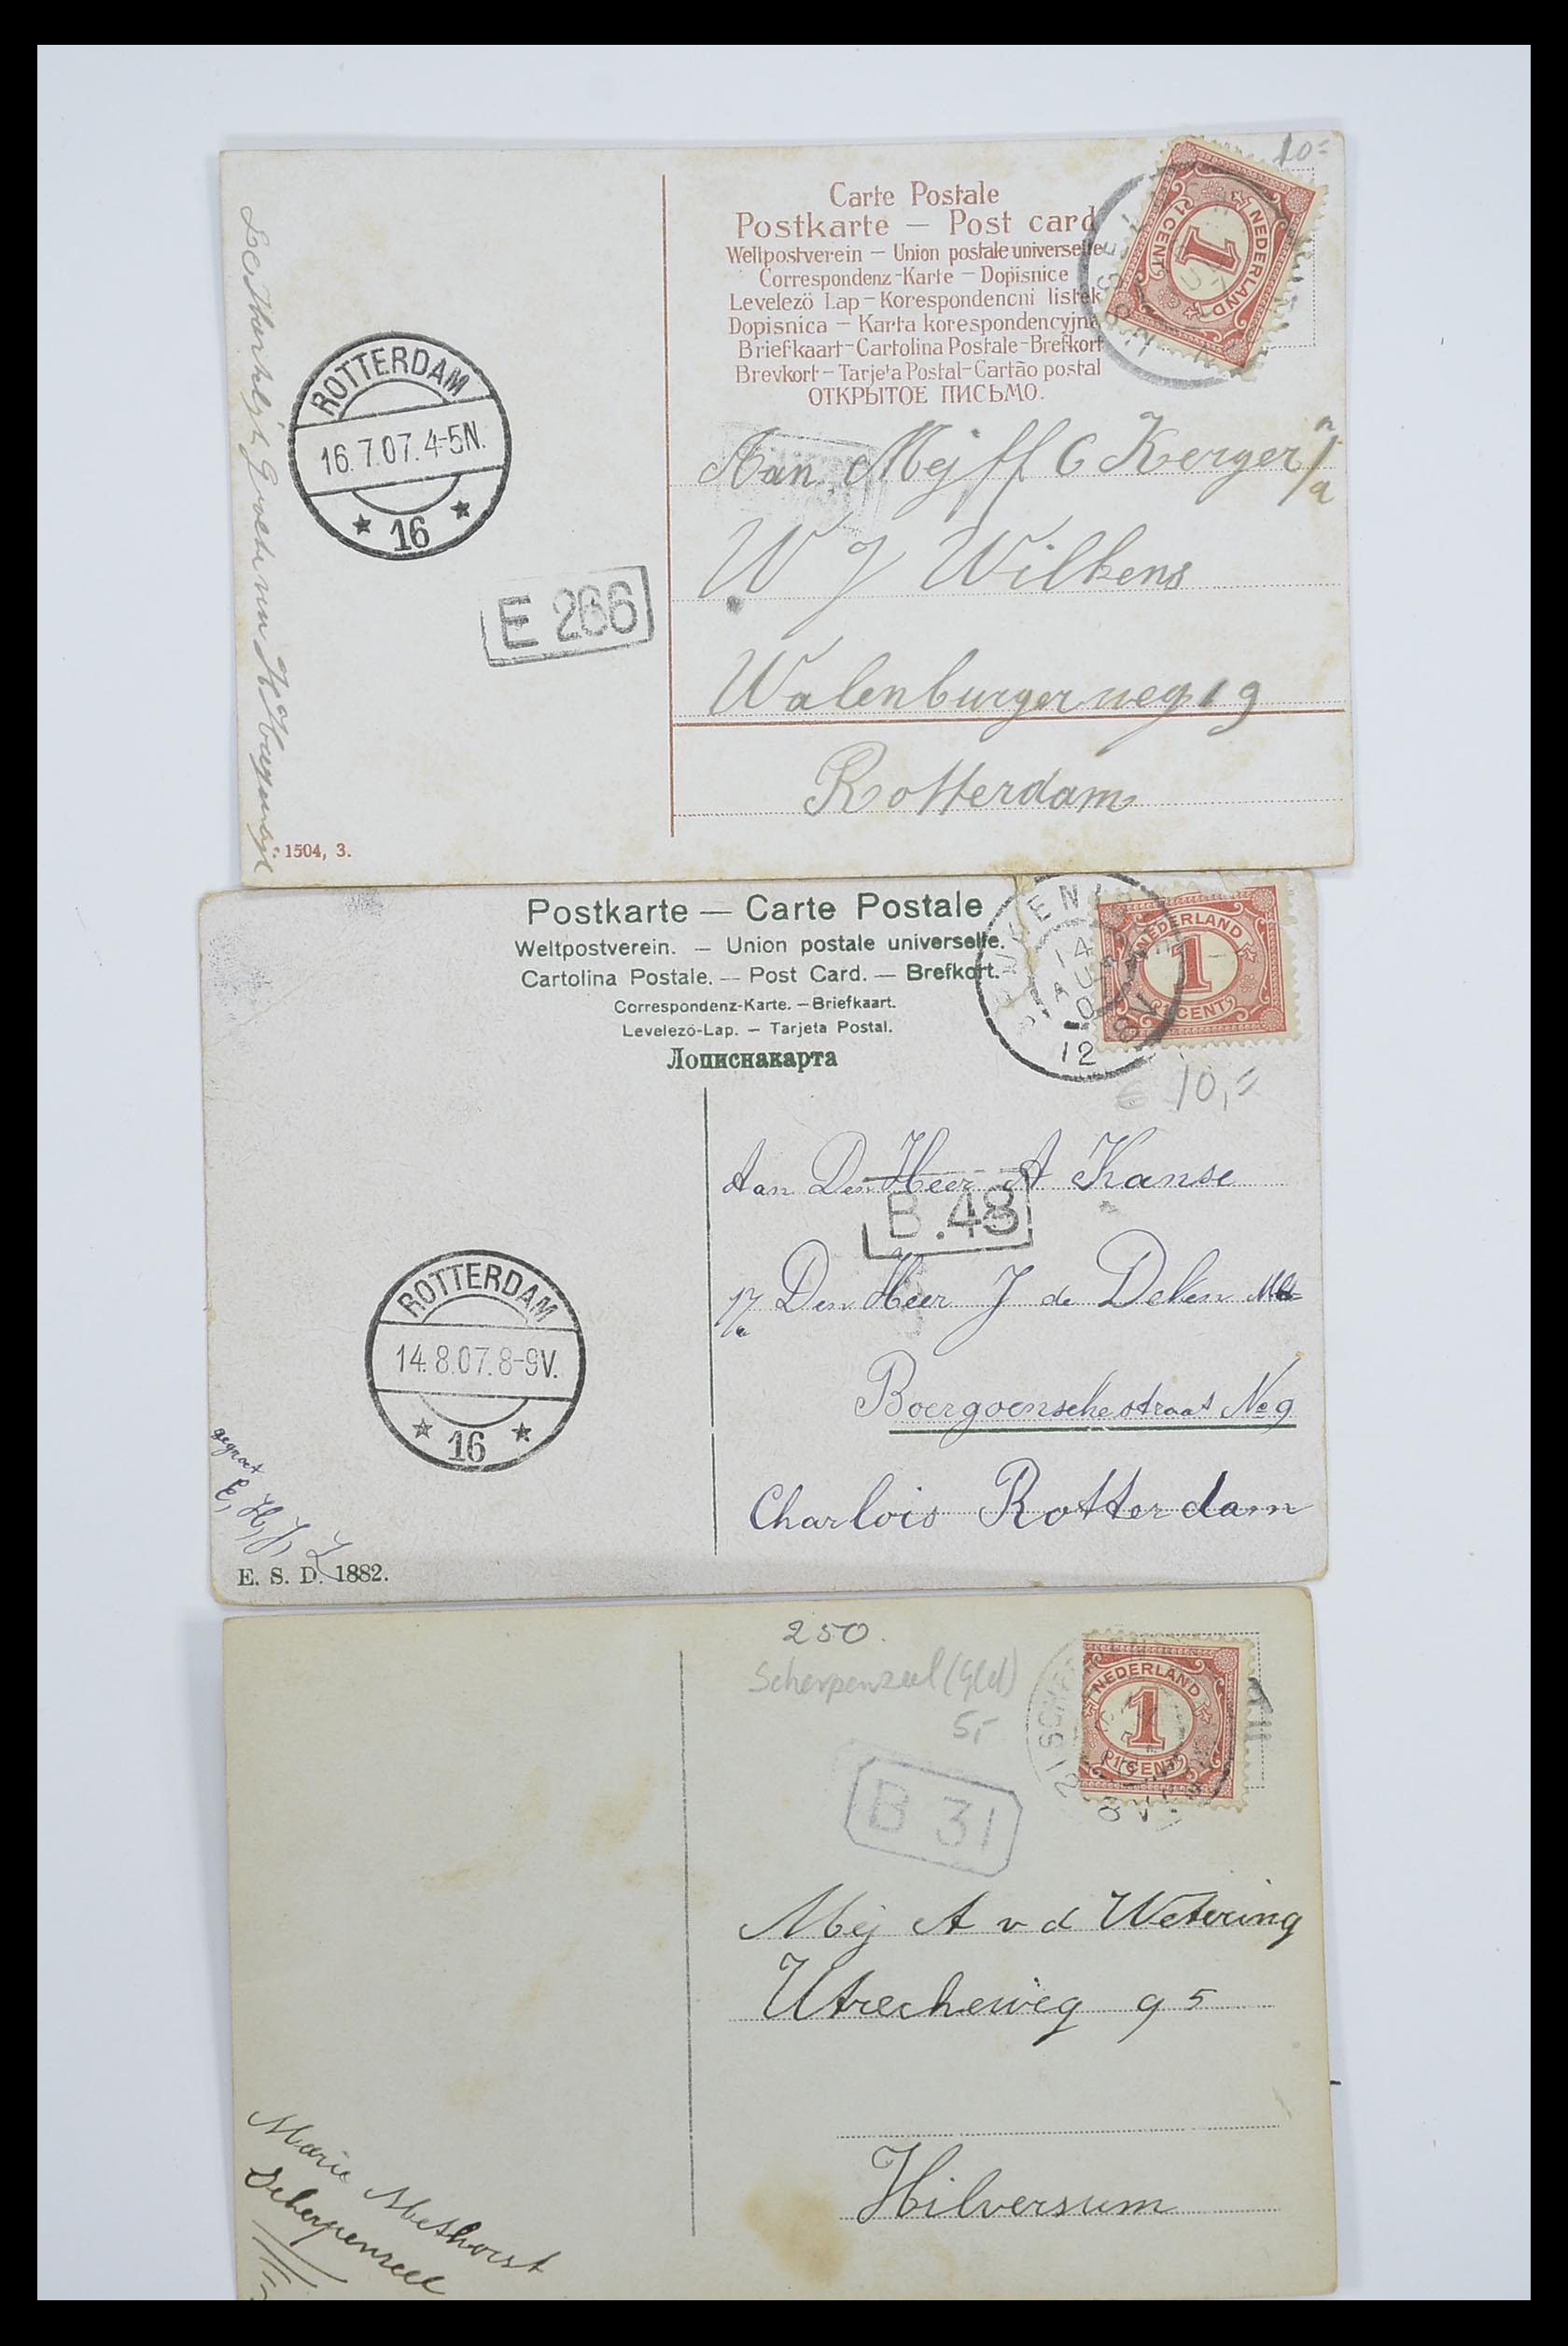 10=
Carte Postale
Postkarte — Post card
Weltpostverein — Union postale universelle
Correspondenz-Karte — Dopisnice
Levelező Lap — Korespondencni listek
Dopisnica — Karta korespondencyjna
Briefkaart-Cartolina Postale-Brefkort
Brevkort — Tarjeta Postal-Cartão postal
ОТКРЫТОЕ ПИСЬМО.
NEDERLAND
1
1 CENT
ROTTERDAM
16.7.07.4-5N.
16
E 266
Aan Mejff C Kerger n/a
W J Wilkens
Walenburgerweg 19
Rotterdam
1504, 3.
Postkarte — Carte Postale
Weltpostverein. — Union postale universelle.
Cartolina Postale. — Post Card. — Brefkort.
Correspondenz-Karte. — Briefkaart.
Levelezö-Lap. — Tarjeta Postal.
Лописнакарта
14 AUG
12
8V
NEDERLAND
1
1 CENT
10,=
Aan Den Heer A Kanse
B.48
Den Heer J de Delen
Boergoenschestraat No 9
Charlois Rotterdam
ROTTERDAM
14.8.07.8-9V.
16
gegroet
E, H, J, L
E. S. D. 1882.
250.
Scherpenzeel (Gld)
5,-
NEDERLAND
1
1 CENT
B 31
Mej A v d Wetering
Utrecheweg 95
Hilversum
Marie Methorst
Scherpenzeel